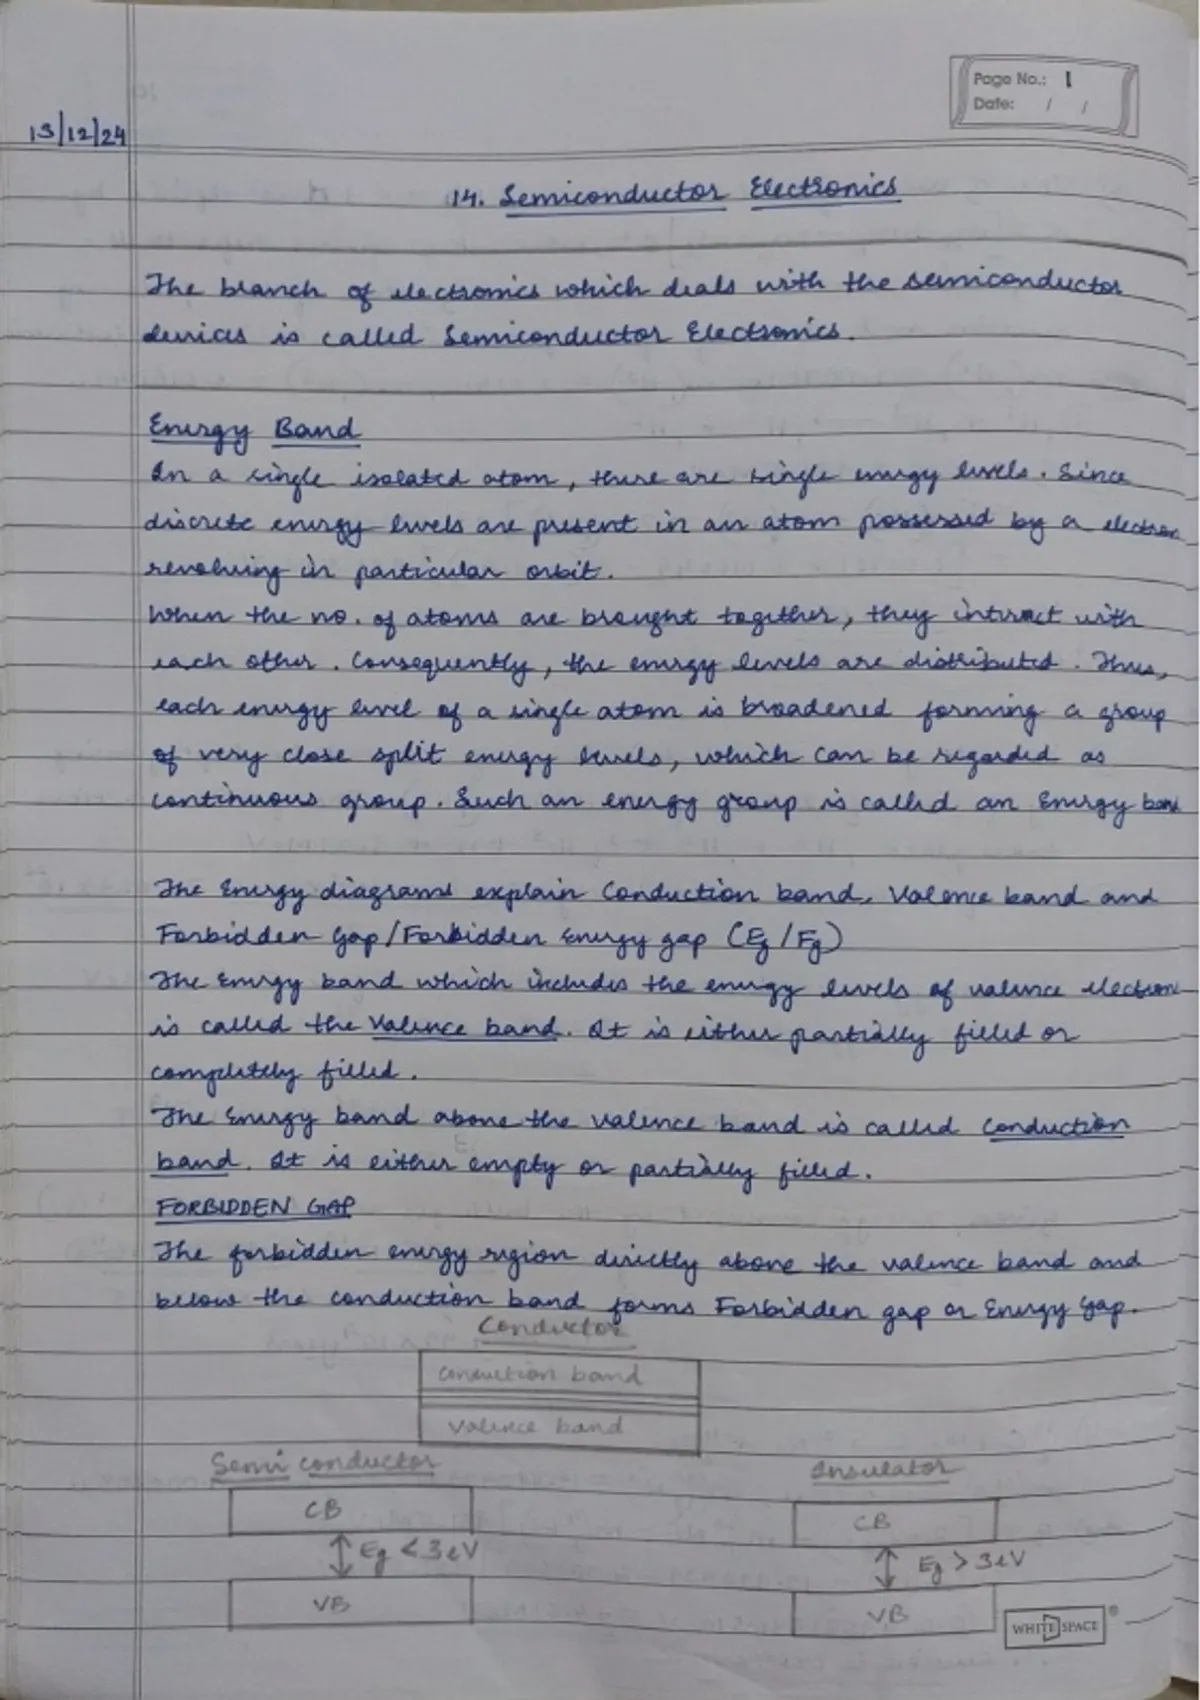 Page No.: 1
Date: / /
13/12/24
14. Semiconductor Electronics
The branch of electronics which deals with the semiconductor
devices is called Semiconductor Electronics.
Energy Band
In a single isolated atom, there are single energy levels. Since
discrete energy levels are present in an atom possessed by a electron
revolving in particular orbit.
When the no. of atoms are brought together, they interact with
each other. Consequently, the energy levels are distributed. Thus,
each energy level of a single atom is broadened forming a group
of very close split energy levels, which can be regarded as
continuous group. Such an energy group is called an Energy band
The Energy diagrams explain Conduction band, Valence band and
Forbidden Gap/Forbidden Energy gap (Eg/Fg)
The Energy band which includes the energy levels of valence electrons
is called the Valence band. It is either partially filled or
completely filled.
The Energy band above the valence band is called Conduction
band. It is either empty or partially filled.
FORBIDDEN GAP
The forbidden energy region directly above the valence band and
below the conduction band forms Forbidden gap or Energy Gap.
Conductor
Conduction band
Valence band
Semi conductor
CB
Eg < 3eV
VB
Insulator
CB
Eg > 3eV
VB
WHITE SPACE ®